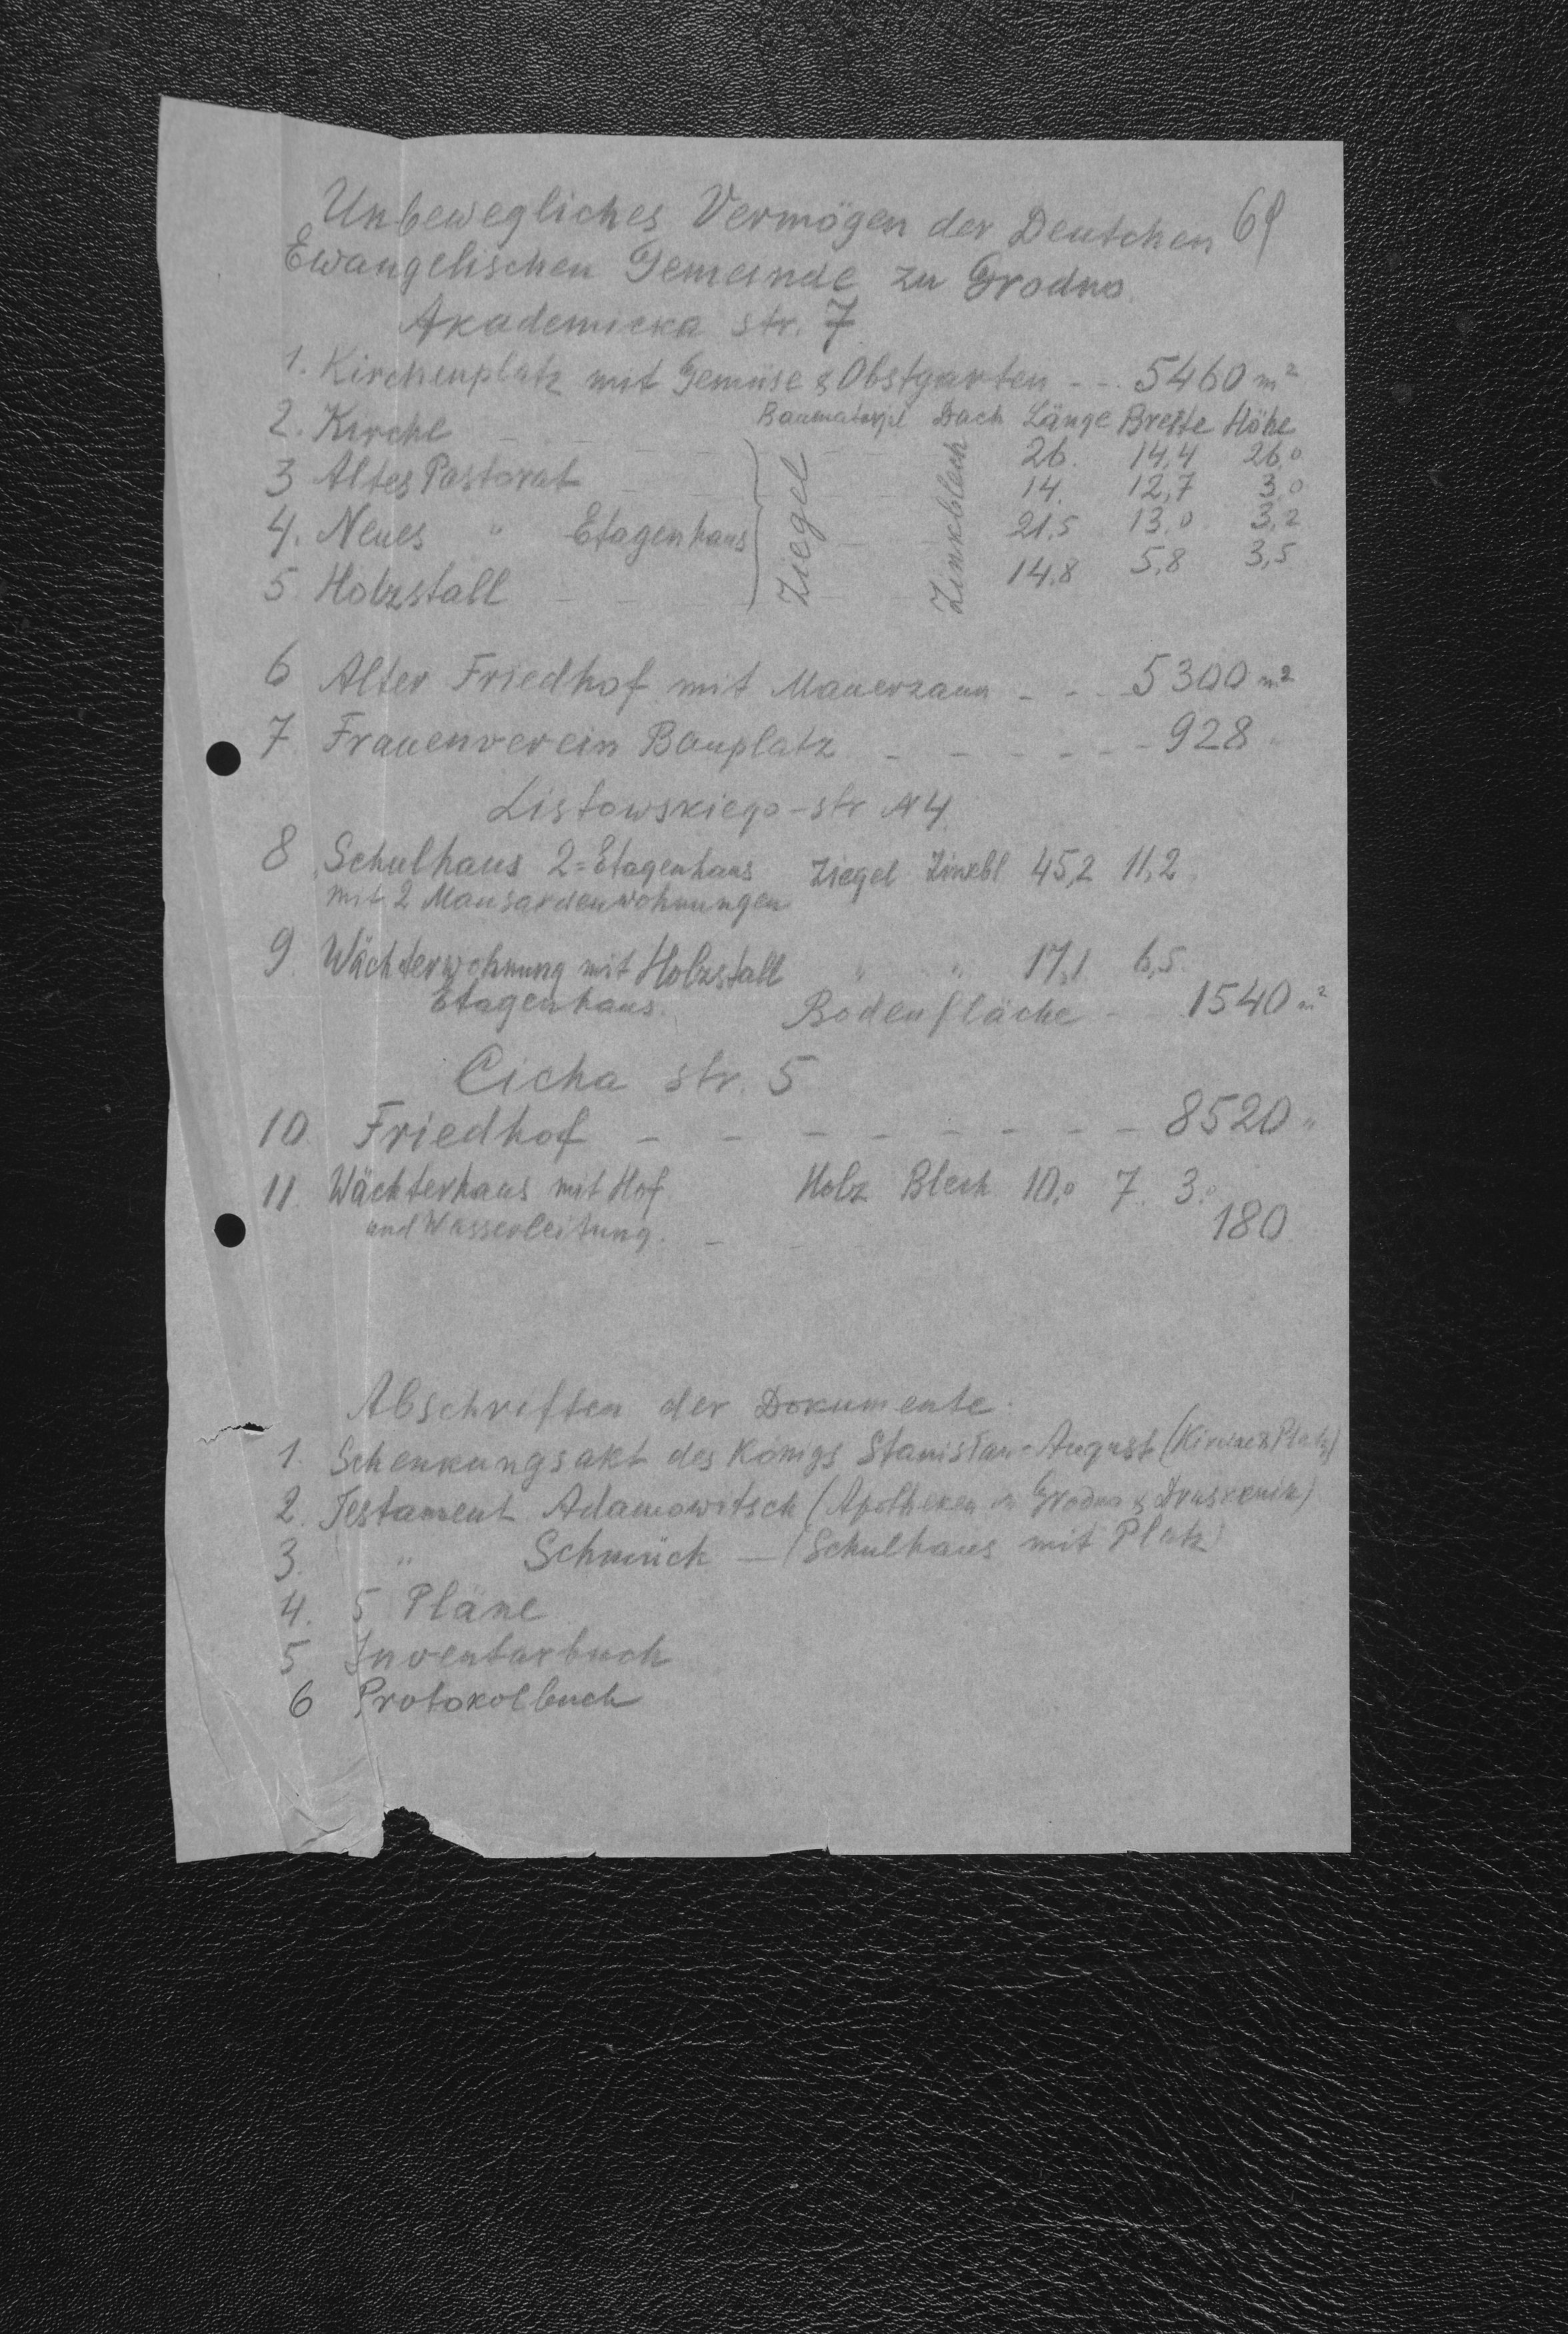 Unbewegliches Vermögen der Deutschen 69
Ewangelischen Gemeinde zu Grodno
Akademicka str. 7
1. Kirchenplatz mit Gemüse & Obstgarten - - . 5460 m²
Baumaterjal Dach Länge Breite Höhe
2. Kirche - - - - 26. 14,4 26,0
3 Altes Pastorat - - - 14. 12,7 3,0
4. Neues " Etagenhaus Ziegel Zinkblech 21,5 13,0 3,2
5. Holzstall - - - 14,8 5,8 3,5
6 Alter Friedhof mit Mauerzaun - - - 5300 m²
7. Frauenverein Bauplatz - - - - - - 928 "
Listowskiego-str N 4
8 Schulhaus 2=Etagenhaus Ziegel Zinkbl 45,2 11,2
mit 2 Mansardenwohnungen
9. Wächterwohnung mit Holzstall " " 17,1 6,5
Etagenhaus. Bodenfläche - - 1540 m²
Cicha str. 5
10. Friedhof - - - - - - - - - 8520 "
11. Wächterhaus mit Hof Holz Blech 10,0 7. 3,0
und Wasserleitung. - 180
Abschriften der Dokumente.
1. Schenkungsakt des Königs Stanisłau-August (Kirche & Platz)
2. Testament Adamowitsch (Apotheken in Grodno & Druskenik)
3. " Schmück - (Schulhaus mit Platz)
4. 5 Pläne
5 Inventarbuch
6 Protokolbuch